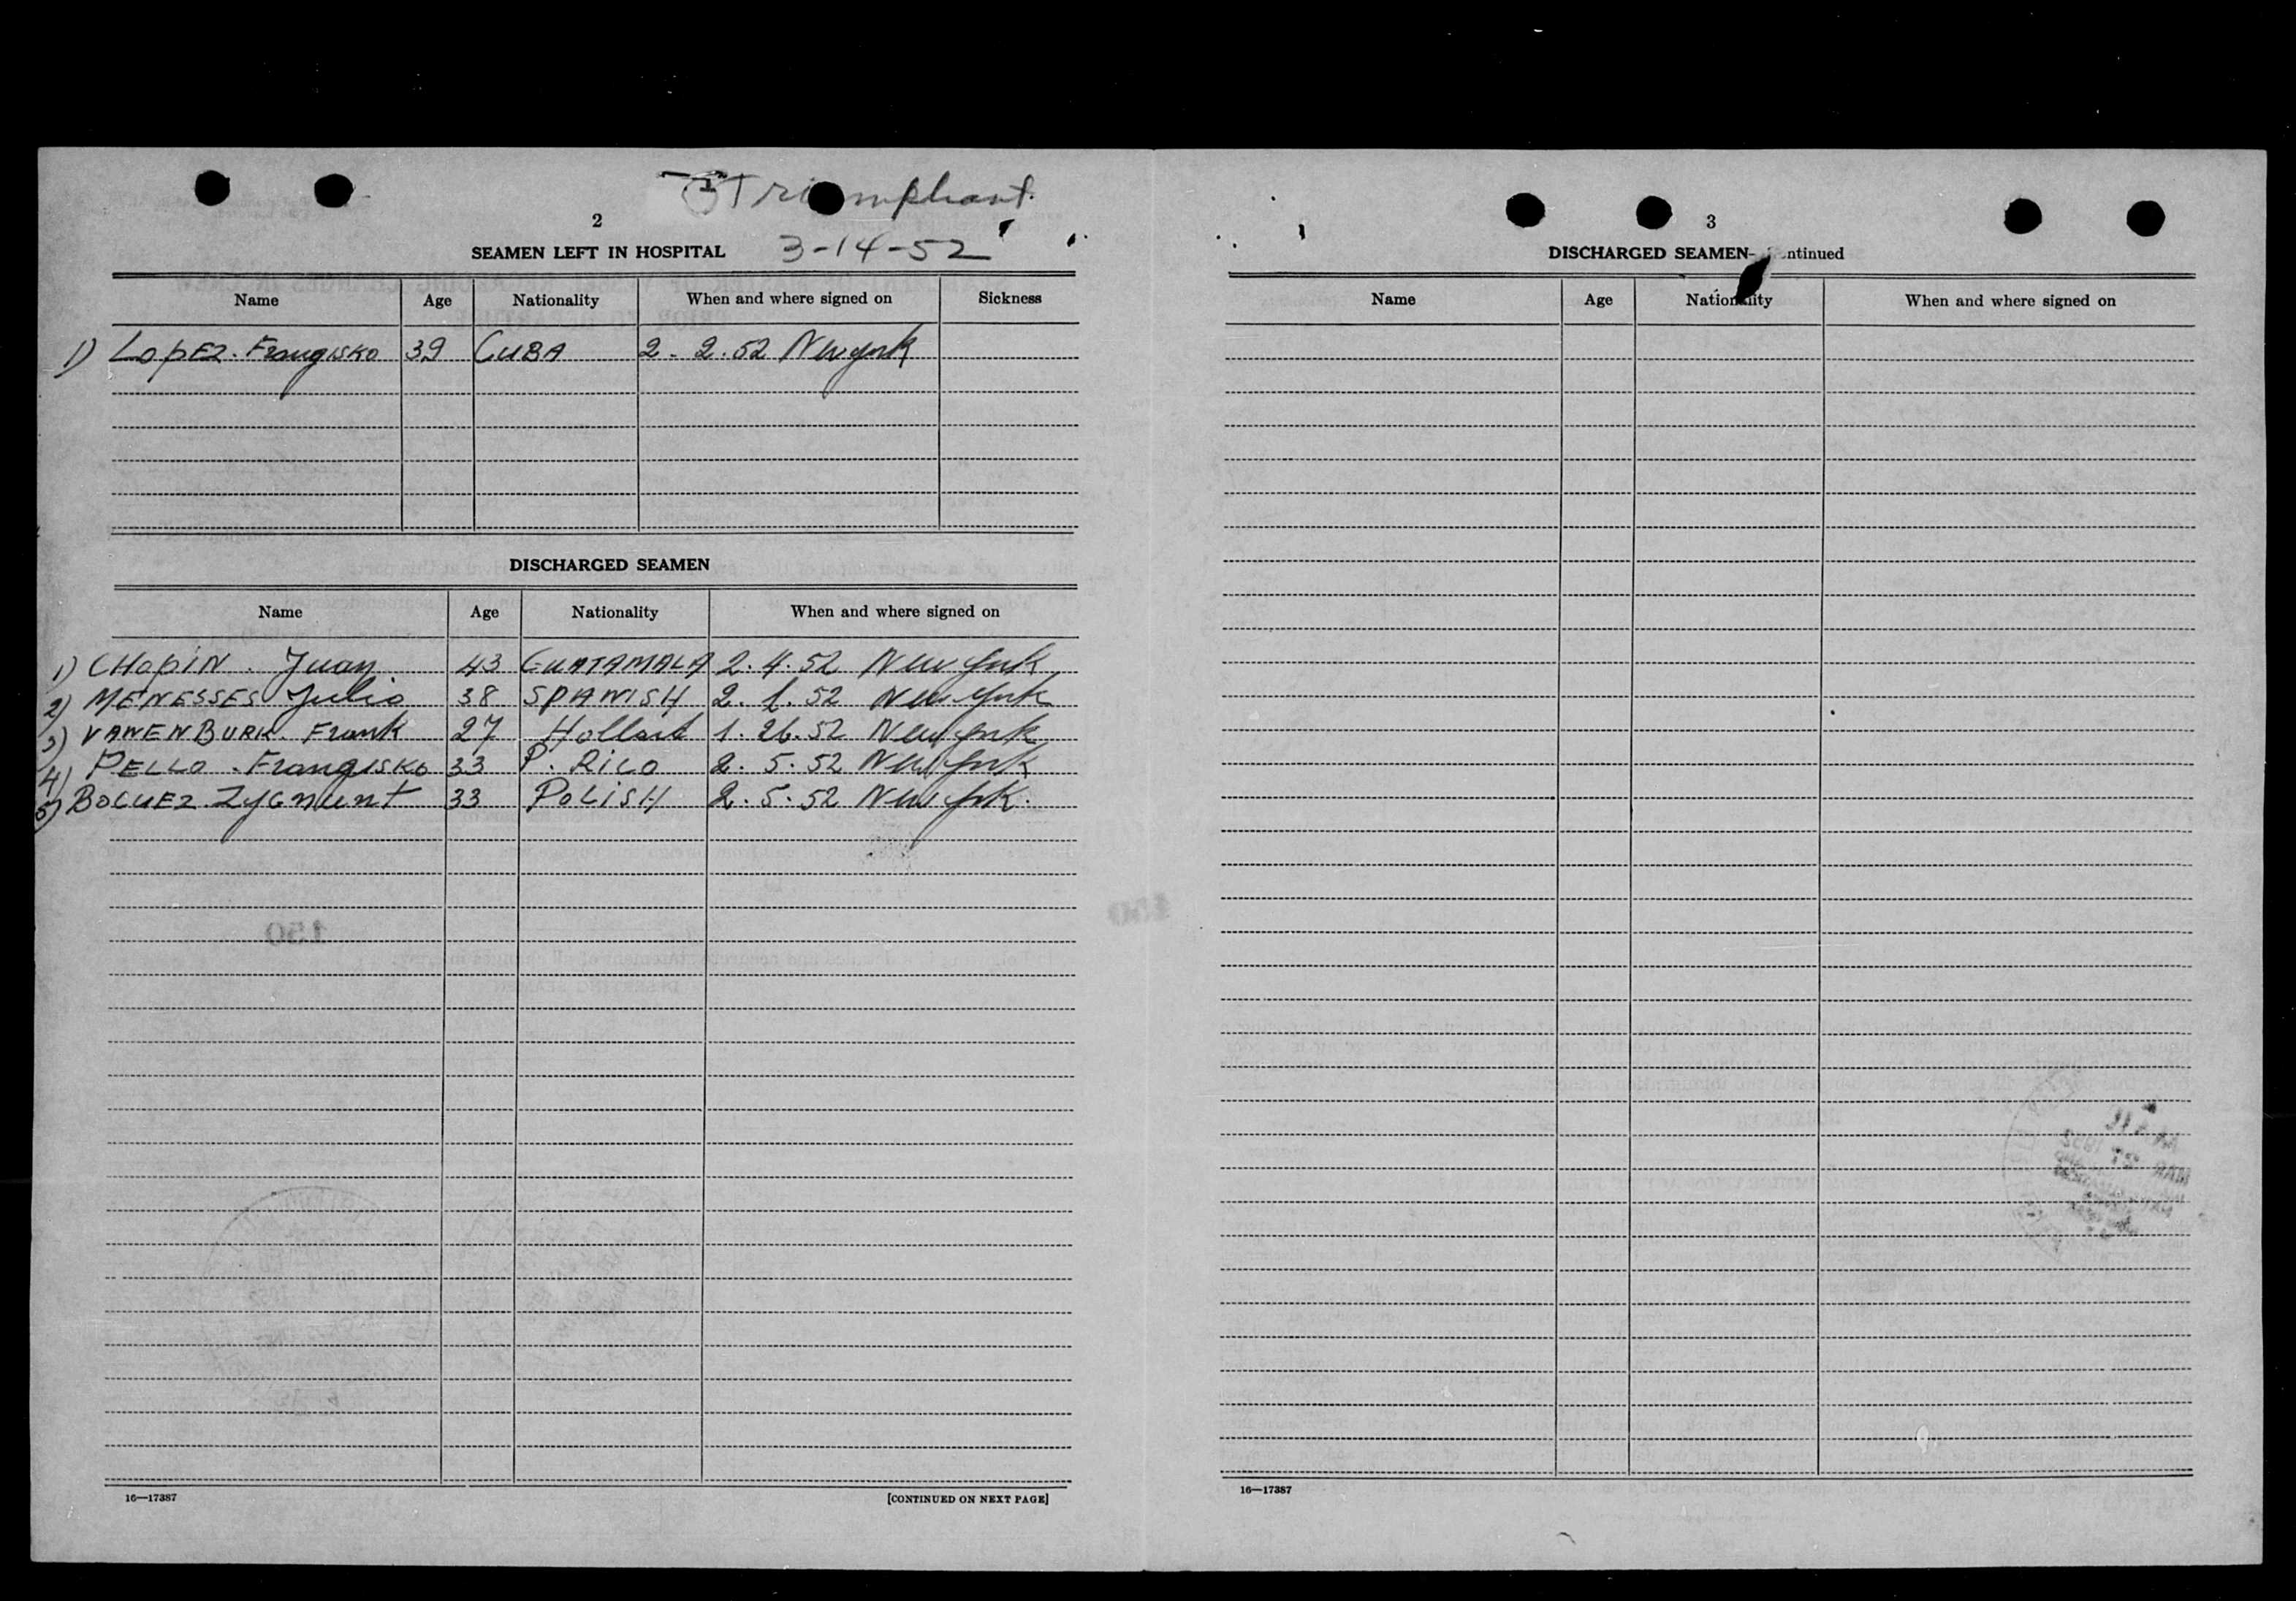 Triumphant.
2
SEAMEN LEFT IN HOSPITAL 3-14-52
Name Age Nationality When and where signed on Sickness
1) LOPEZ. Frangisko 39 CUBA 2. 2. 52 New York
DISCHARGED SEAMEN
Name Age Nationality When and where signed on
1) CHOPIN. Juan 43 GUATAMALA 2. 4. 52 New York
2) MENESSES Julio 38 SPANISH 2. 1. 52 New York
3) VANENBURK. Frank 27 Holland 1. 26. 52 New York
4) PELLO. Frangisko 33 P. RICO 2. 5. 52 New York
5) BOCUEZ Zygmunt 33 POLISH 2. 5. 52 New York.
150
16—17387 [CONTINUED ON NEXT PAGE]
3
DISCHARGED SEAMEN- ntinued
Name Age Nationality When and where signed on
16—17387